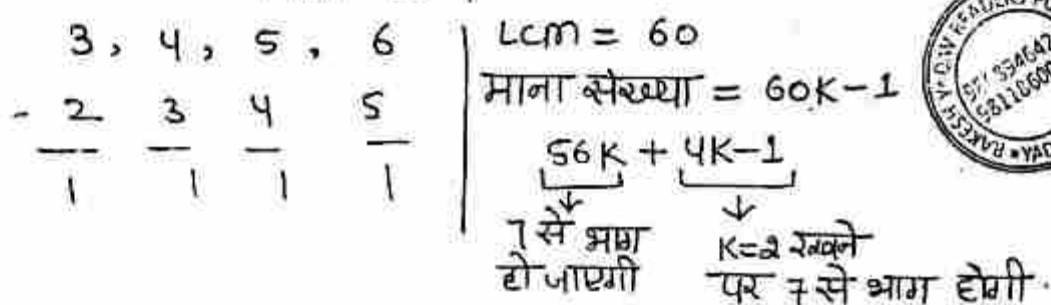 3, 4, 5, 6
- 2 3 4 5
1 1 1 1
LCM = 60
माना संख्या = 60K-1
56K + 4K-1
7 से भाग
हो जाएगी
K=2 रखने
पर 7 से भाग होगी.